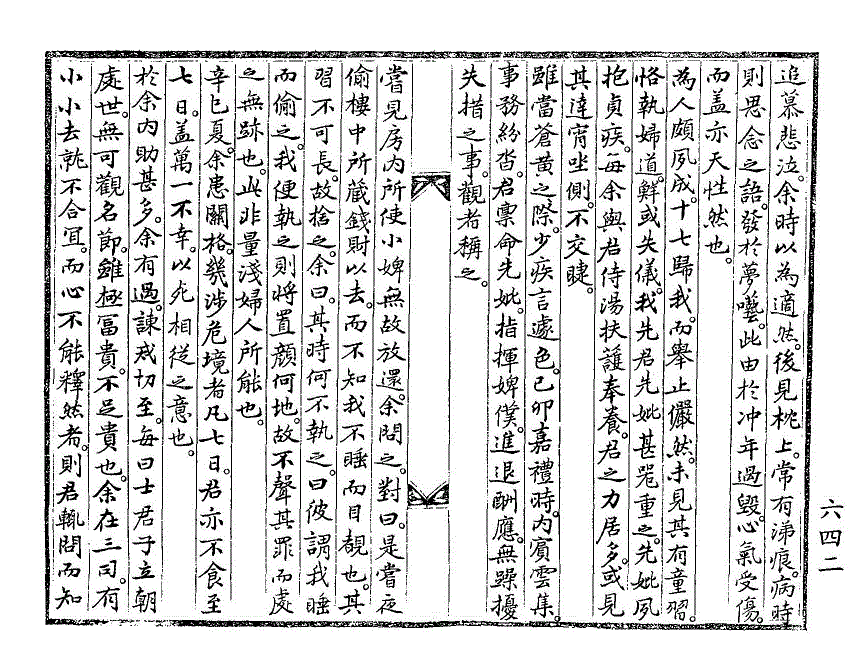 追慕悲泣。余時以為適然。後見枕上。常有涕痕。病時
則思念之語。發於夢囈。此由於冲年過毁。心氣受傷。
而盖亦天性然也。
為人頗夙成。十七歸我。而舉止儼然。未見其有童習。
恪執婦道。鮮或失儀。我先君先妣甚器重之。先妣夙
抱貞疾。每余與君侍湯扶護奉養。君之力居多。或見
其達宵坐側。不交睫。
雖當蒼黃之際。少疾言遽色。己卯嘉禮時。內賓雲集。
事務紛沓。君稟命先妣。指揮婢僕。進退酬應。無躁擾
失措之事。觀者稱之。
嘗見房內所使小婢無故放還。余問之。對曰。是嘗夜
偷樓中所藏錢財以去。而不知我不睡而目覩也。其
習不可長。故捨之。余曰。其時何不執之。曰彼謂我睡
而偷之。我便執之則將置顔何地。故不聲其罪而處
之無跡也。此非量淺婦人所能也。
辛巳夏。余患關格。幾涉危境者凡七日。君亦不食至
七日。盖萬一不幸。以死相從之意也。
於余內助甚多。余有過。諫戒切至。每曰士君子立朝
處世。無可觀名節。雖極富貴。不足貴也。余在三司。有
小小去就不合宜。而心不能釋然者。則君輒問而知
六四二